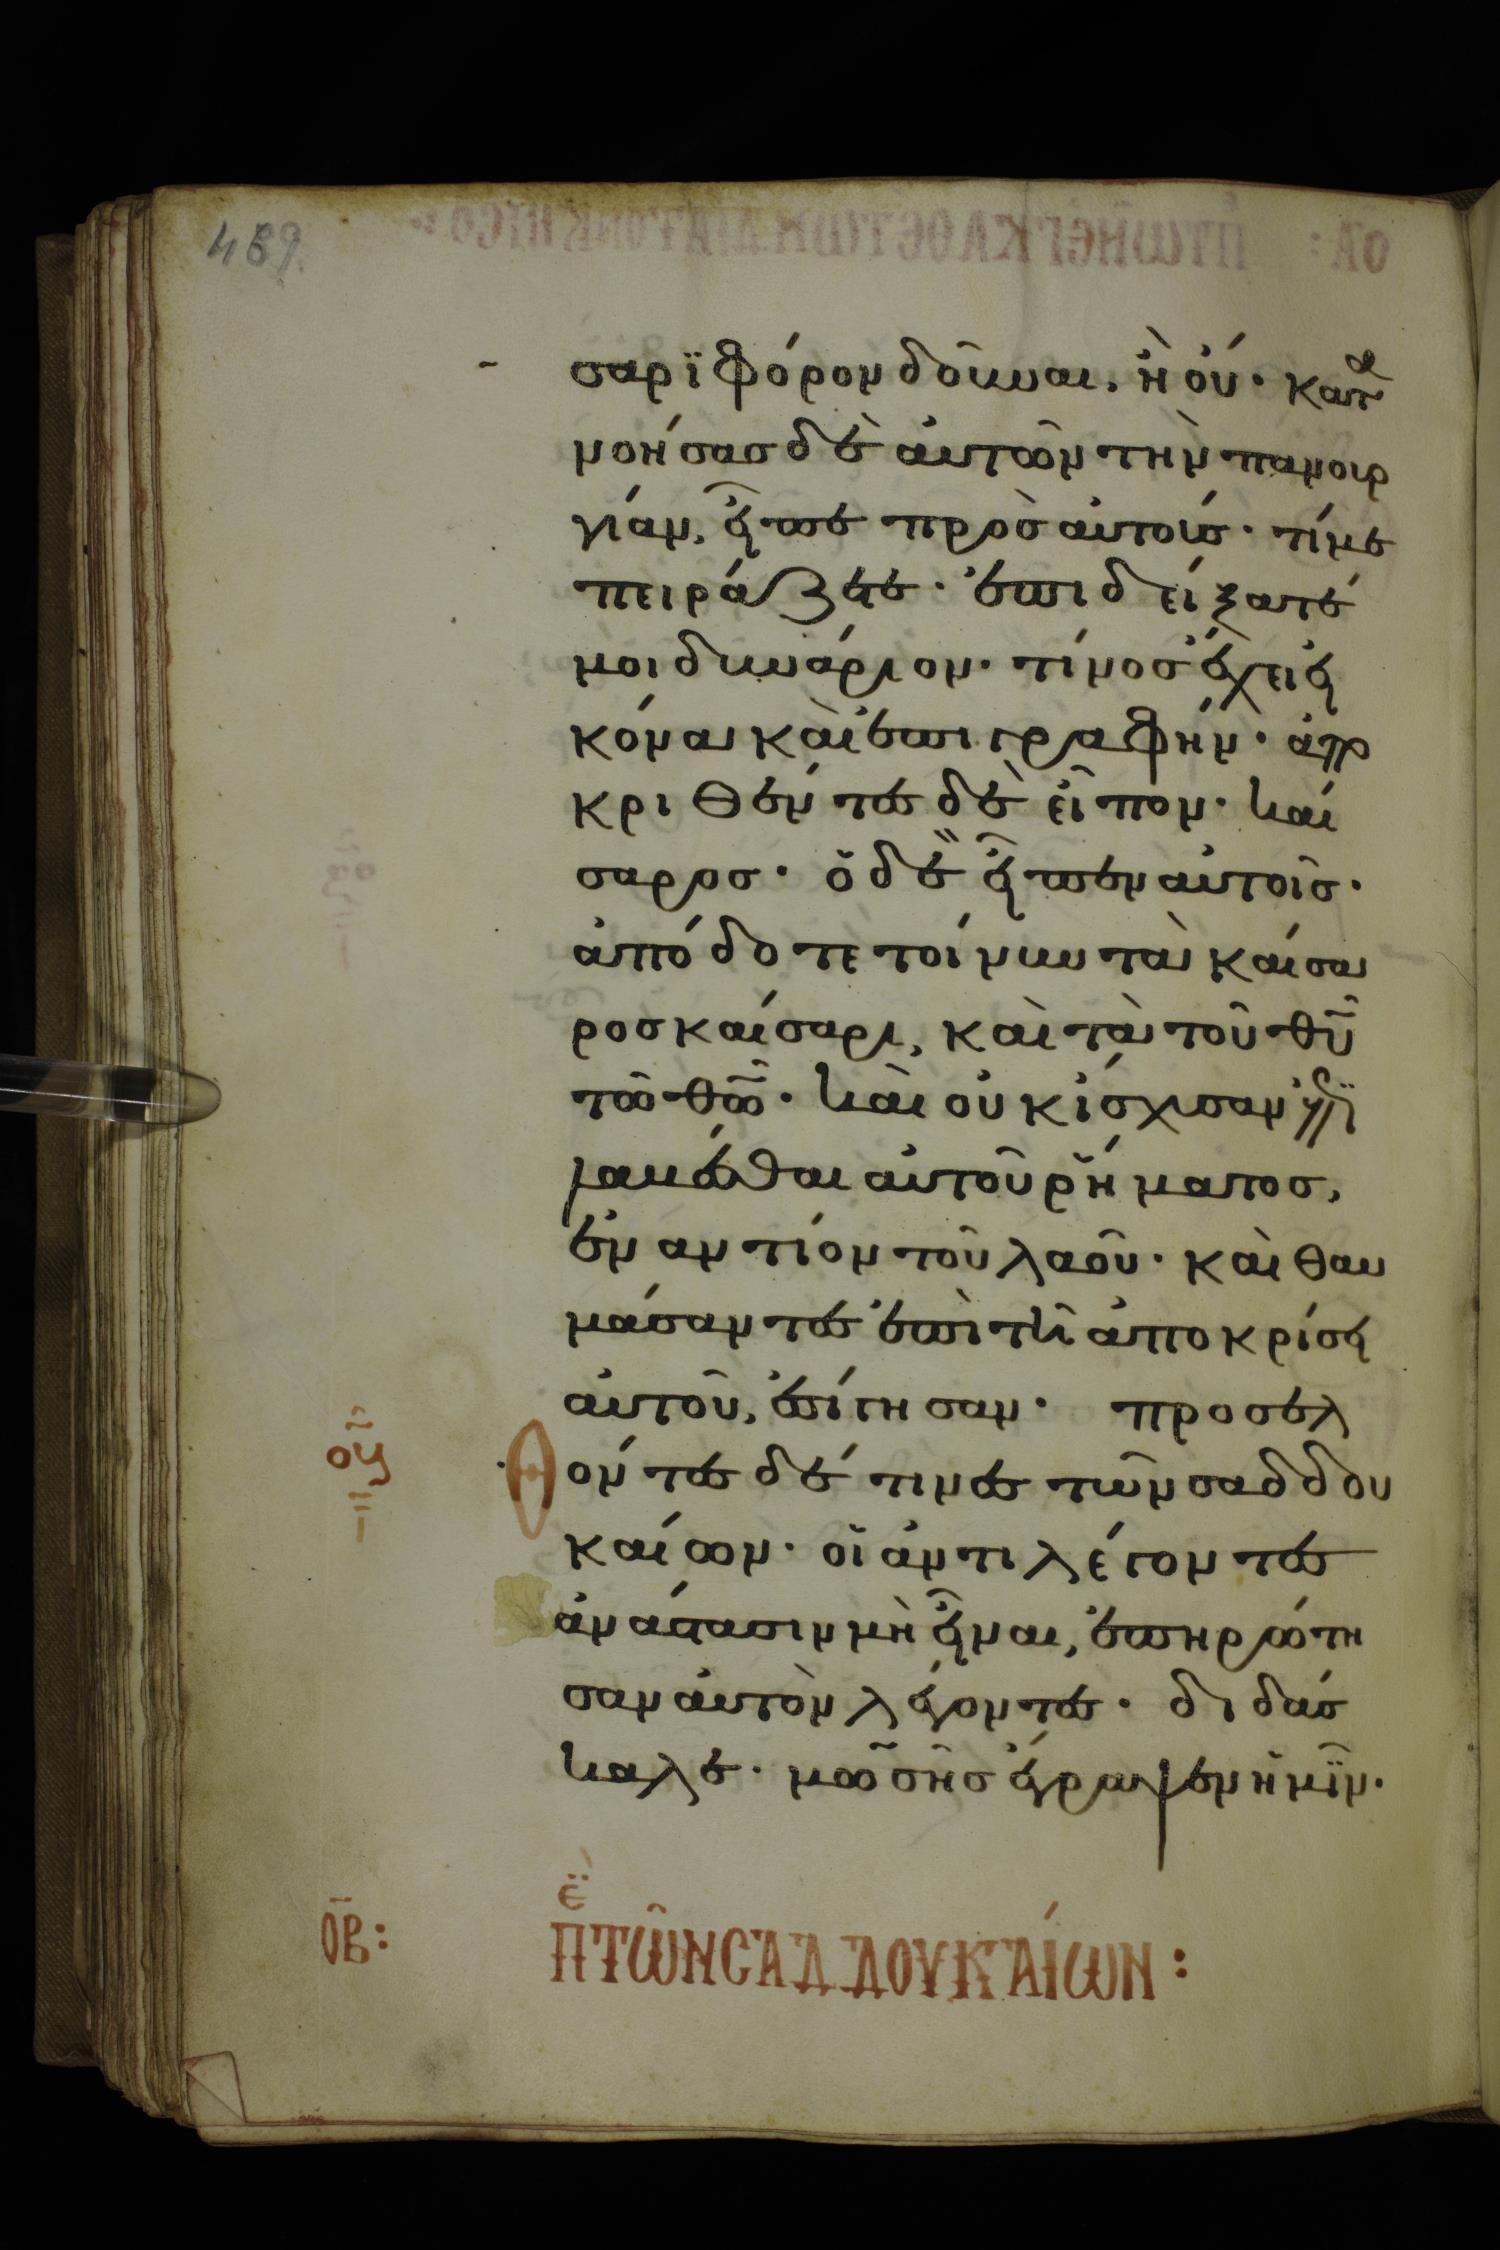 489
σαρϊ φόρον δοῦναι, ἢ οὔ· κατα
νοήσας δὲ αὐτῶν τὴν πανουρ
γίαν, εἶπε πρὸς αὐτούς· τί με
πειράζετε· ἐπιδείξατέ
μοι δηνάριον· τίνος ἔχει εἰ
κόνα καὶ ἐπιγραφήν· ἀπο
κριθέντες δὲ εἶπον· καί
σαρος· ὁ δὲ εἶπεν αὐτοῖς·
ἀπόδοτε τοίνυν τὰ καίσα
ρος καίσαρι, καὶ τὰ τοῦ θῦ
τῶ θῶ· καὶ οὐκ ἴσχυσαν ἐπι
λαβέσθαι αὐτοῦ ῥήματος,
ἐναντίον τοῦ λαοῦ· καὶ θαυ
μάσαντες ἐπὶ τῆ ἀποκρίσει
αὐτοῦ, ἐσίγησαν· προσελ
θόντες δέ τινες τῶν σαδδου
καίων· οἱ ἀντιλέγοντες
ἀνάστασιν μὴ εἶναι, ἐπηρώτη
σαν αὐτὸν λέγοντες· διδάσ
καλε· μωσῆς ἔγραψεν ἡμῖν·
ΟΒ: Π ΤῶΝ ΣΑΔΔΟΥΚΑίΩΝ: